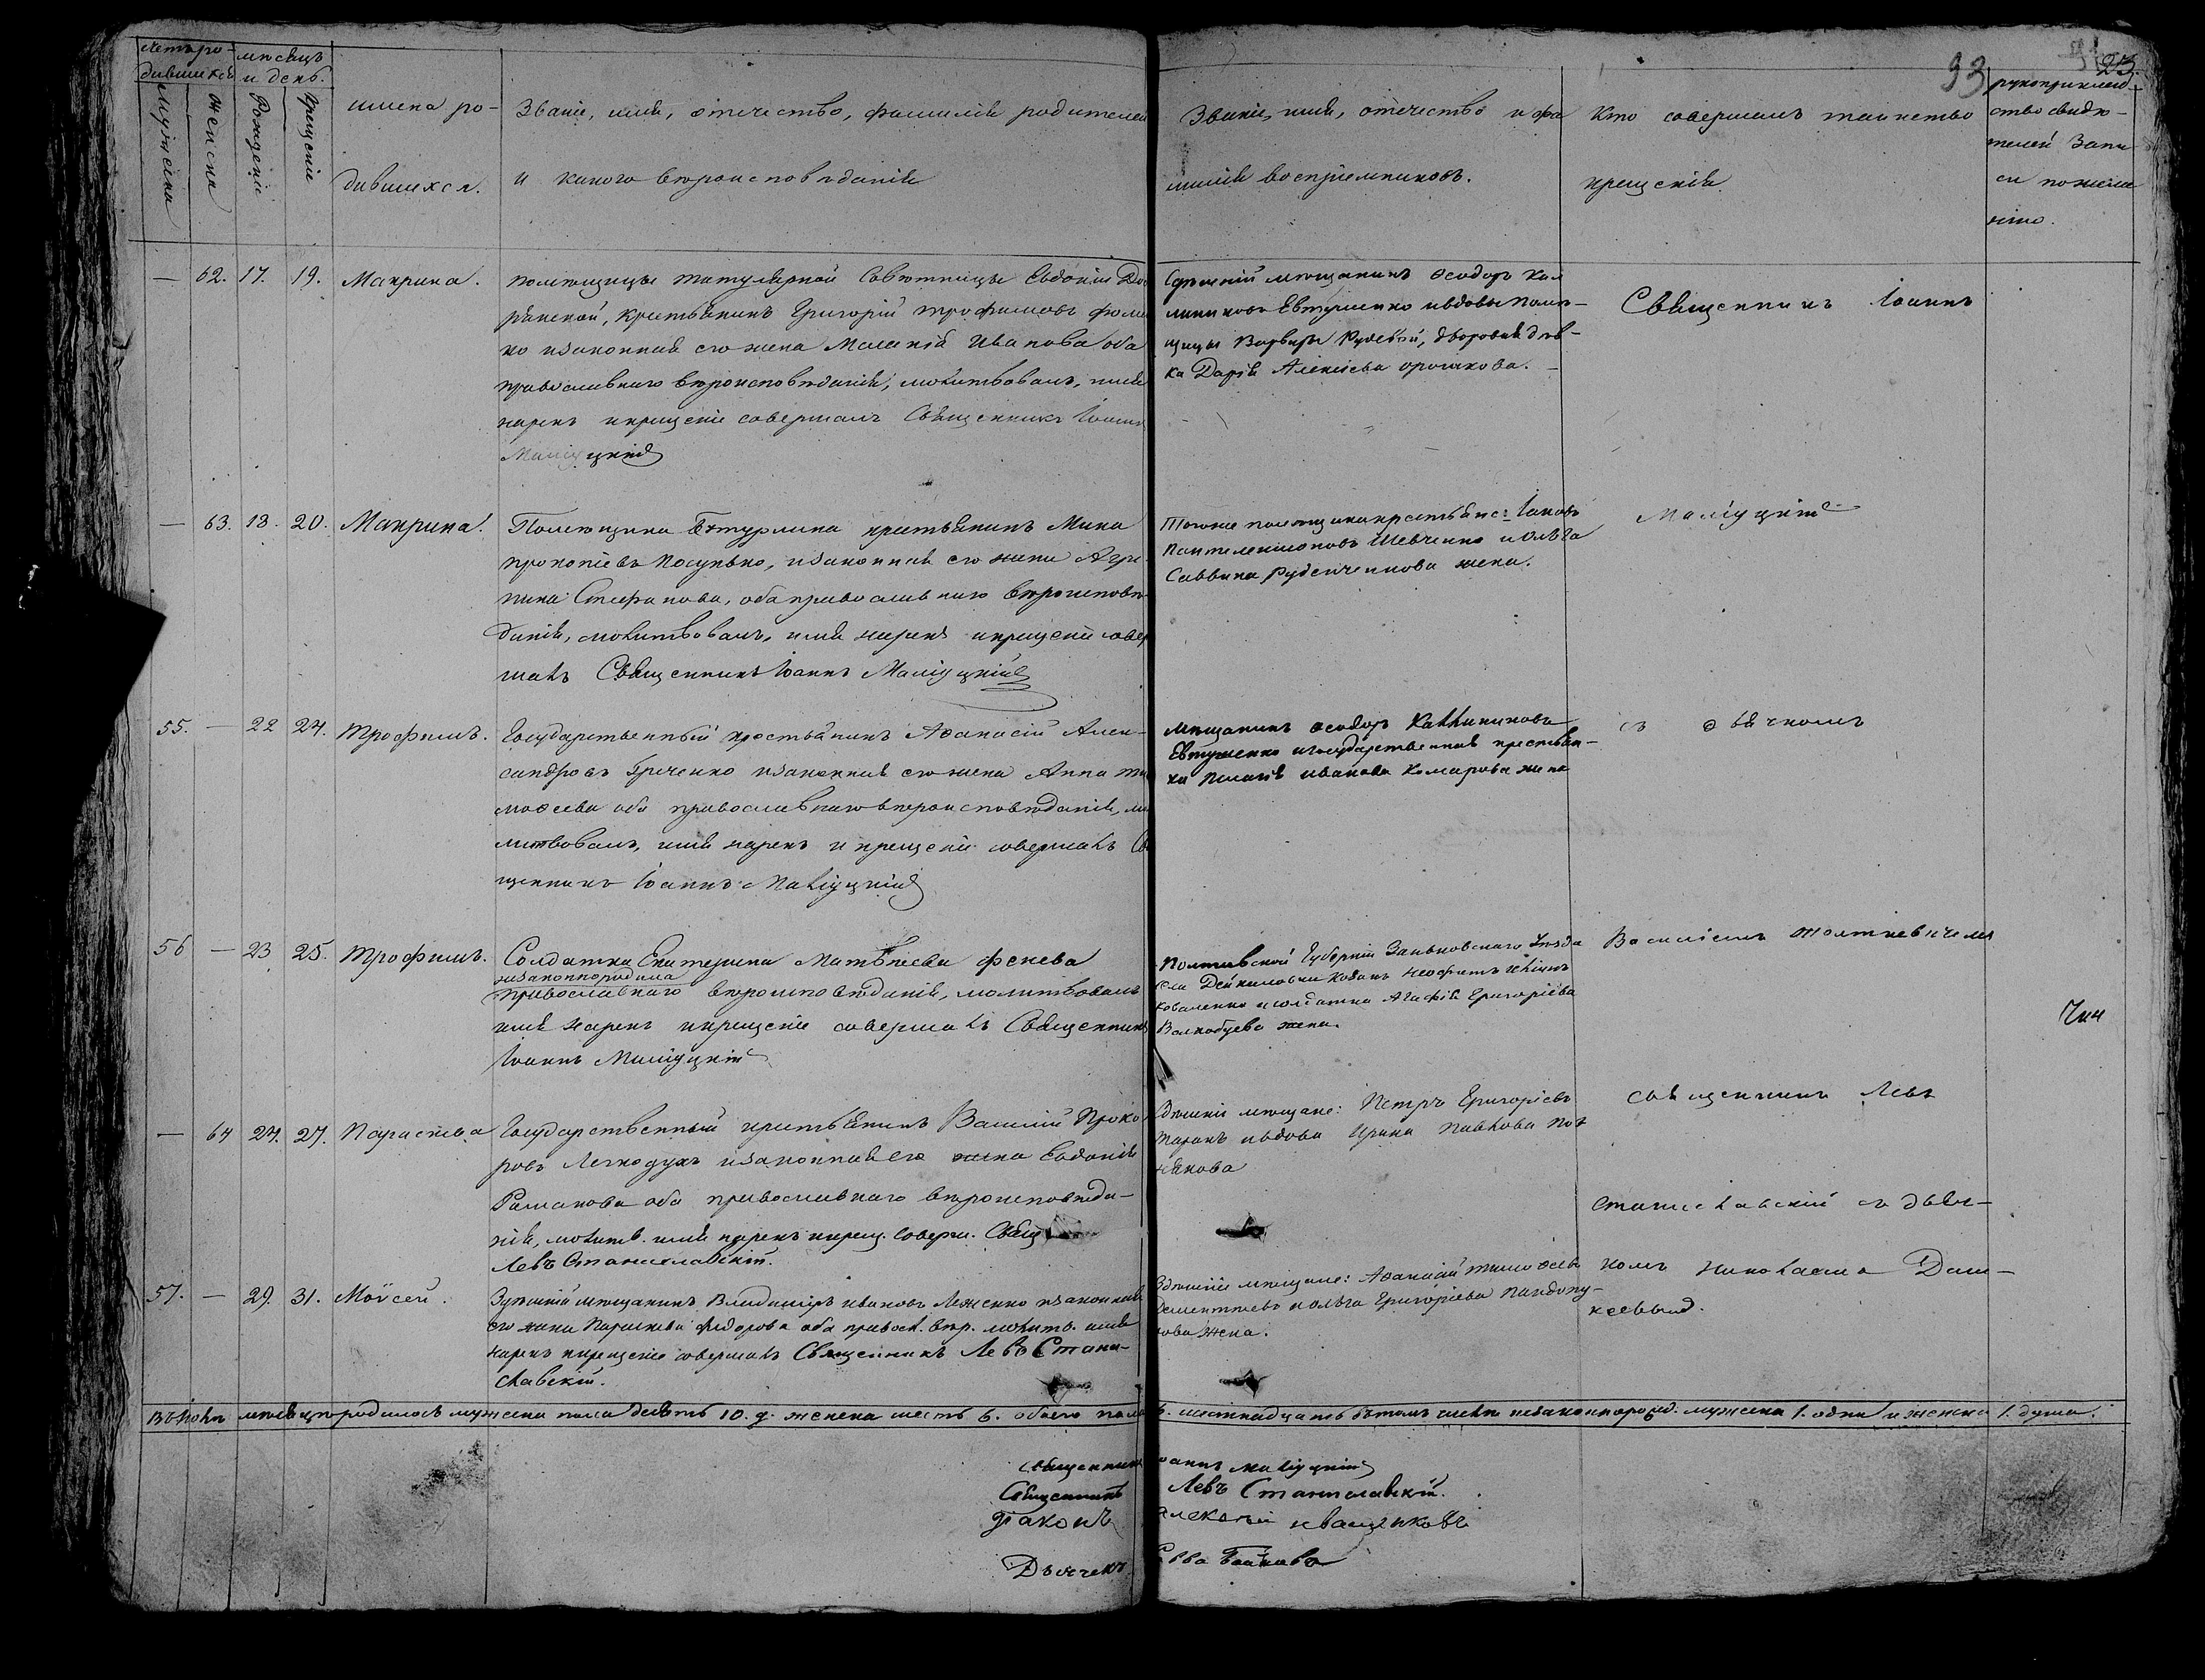 93
23.
Счетъ ро-
дившихся
мѣсяцъ
и день.
Мужеска
Женска
Рожденіе
Крещеніе
имена ро-
дившихся.
Званіе, имя, отечество, фамилія родителей
и какого вѣроисповѣданія
Званіе, имя, отечество и фа
милія воспріемниковъ.
Кто совершалъ таинство
крещенія.
рукоприклад-
ство свидѣ-
телей Запи
си по жела
нію.
— 62. 17. 19. Макрина.
помѣщицы титулярной Совѣтницы Евдокіи
крестьянинъ Григорій Трофимовъ
ко изаконная его жена Меланія Иванова оба
православнаго вѣроисповѣданія, молитвовалъ, имя
нарекъ икрещеніе совершалъ Священникъ Іоаннъ
Маліуцкій
Здѣшній мѣщанинъ Ѳеодоръ Кал
линиковъ Евтушенко ивдовы помѣ-
щицы Варвары дворовая дѣв-
ка Дарія Алексіева
Священникъ Іоаннъ
— 63. 18. 20. Макрина.
Помѣщика Бутурлина крестьянинъ Мина
Прокопіевъ изаконная его жена Агри-
пина Стефанова, оба православнаго вѣроисповѣ-
данія, молитвовалъ, имя нарекъ икрещеніе совер
шалъ Священникъ Іоаннъ Маліуцкій
Тогоже помѣщика крестьяне: Іаковъ
Пантелеимоновъ Шевченко и Ольга
Саввина Руденченкова жена.
Маліуцкій
55. — 22 24. Трофимъ.
Государственный крестьянинъ Аѳанасій Алек-
сандровъ Гриченко изаконная его жена Анна Ти
моѳеева оба православнаго вѣроисповѣданія, мо
литвовалъ, имя нарекъ и крещеніе совершалъ Свя
щенникъ Іоаннъ Маліуцкій
Мѣщанинъ Ѳеодоръ Каллиниковъ
Евтушенко игосударственная крестьян-
ка Пелагія Иванова Комарова жена
съ дьячкомъ
56 — 23 25. Трофимъ.
Солдатка Екатерина Матвѣева Фенева
незаконнородила
православнаго вѣроисповѣданія, молитвовалъ
имя нарекъ икрещеніе совершалъ Священникъ
Іоаннъ Маліуцкій
Полтавской Губерніи Зѣньковскаго Уѣзда
села Козакъ Неофитъ
Коваленко исолдатка Агафія Григоріева
жена.
Василіемъ
Чин
— 64 24. 27. Параскева
Государственный крестьянинъ Василій Прохо
ровъ Легкодухъ изаконная его жена Евдокія
Романова оба православнаго вѣроисповѣда-
нія, молитв. имя нарекъ икрещ. соверш. Свящ
Левъ Станиславскій.
Здѣшніе мѣщане: Петръ Григоріевъ
Таранъ ивдова Ирина Павлова
Священникъ Левъ
Станиславскій съ дьяч-
57. — 29. 31. Моѵсей.
Здѣшній мѣщанинъ Владиміръ Ивановъ Леженко изаконная
его жена Параскева Федорова оба правосл. вѣр. молитв. имя
нарекъ икрещеніе совершалъ Священникъ Левъ Стани-
славскій.
Здѣшніе мѣщане: Аѳанасій Тимоѳеевъ
Дементіевъ иОльга Григоріева
жена.
комъ Николаемъ Даш-
кеевымъ.
Въ Іюлѣ мѣсяцѣ родилось мужеска пола десять 10. д. женска шесть 6. обоего пола
шестнадцать вътомъ числѣ незаконнорожд. мужска 1. одна и женска 1. душа.
Священникъ Іоаннъ Маліуцкій
Священникъ Левъ Станиславскій.
Діаконъ Алексѣй Иващенковъ
Дьячекъ Савва